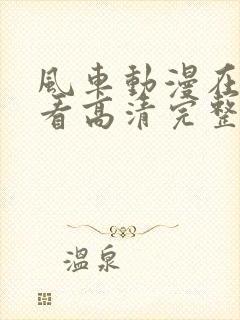 風車動漫在
看高清完整
温泉